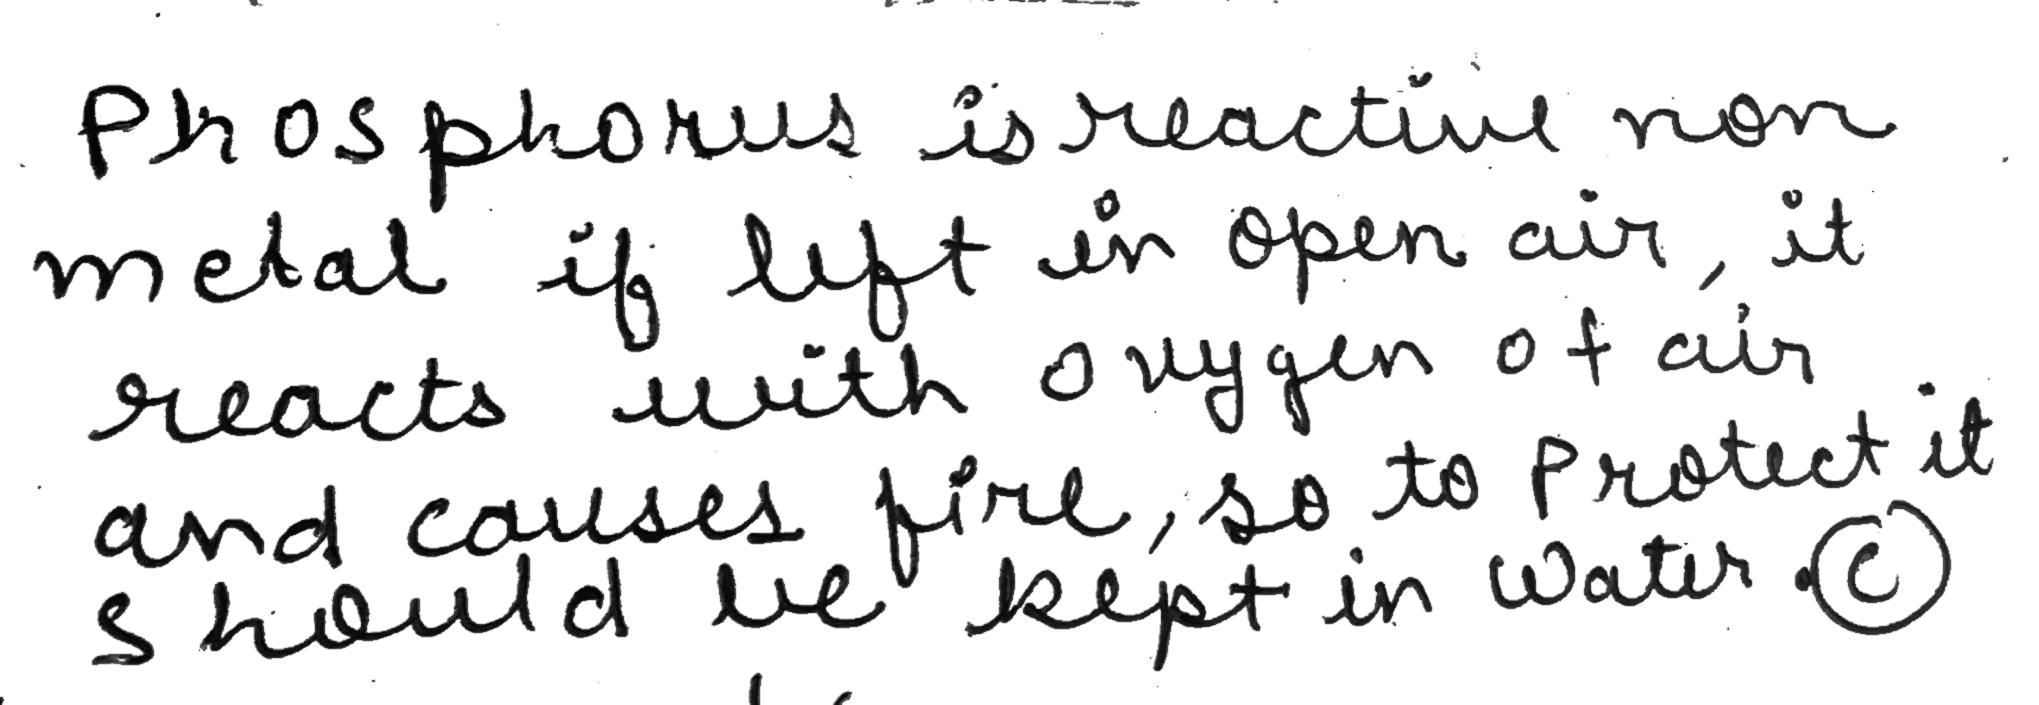 Phosphorus is reactive non
metal if left in open air, it
reacts with oxygen of air
and causes fire, so to Protect it
should be kept in Water. C